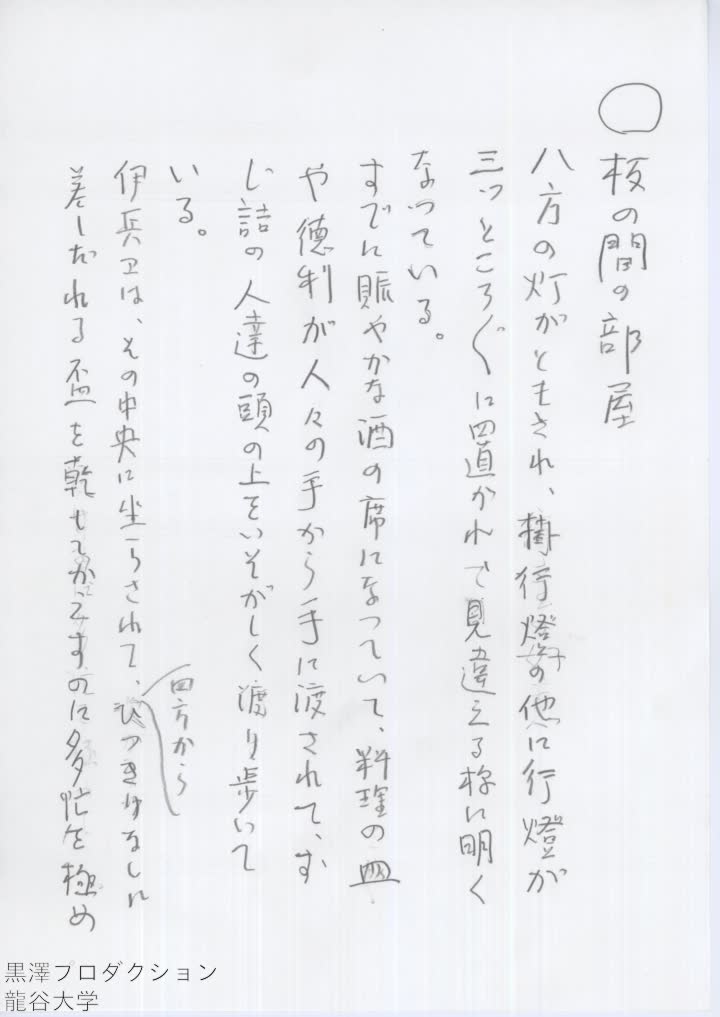 ○ 板の間の部屋
八方の灯がともされ、掛行燈の他に行燈が
三ッところ〴〵に置かれて見違える様に明く
なっている。
すでに賑やかな酒の席になっていて、料理の皿
や徳利が人々の手から手に渡されて、す
し詰の人達の頭の上をいそがしく渡り歩いて
いる。
伊兵ヱは、その中央に坐らされて、ひっきりなしに
四方から
差しだれる盃を乾してかえすのに多忙を極め
黒澤プロダクション
龍谷大学